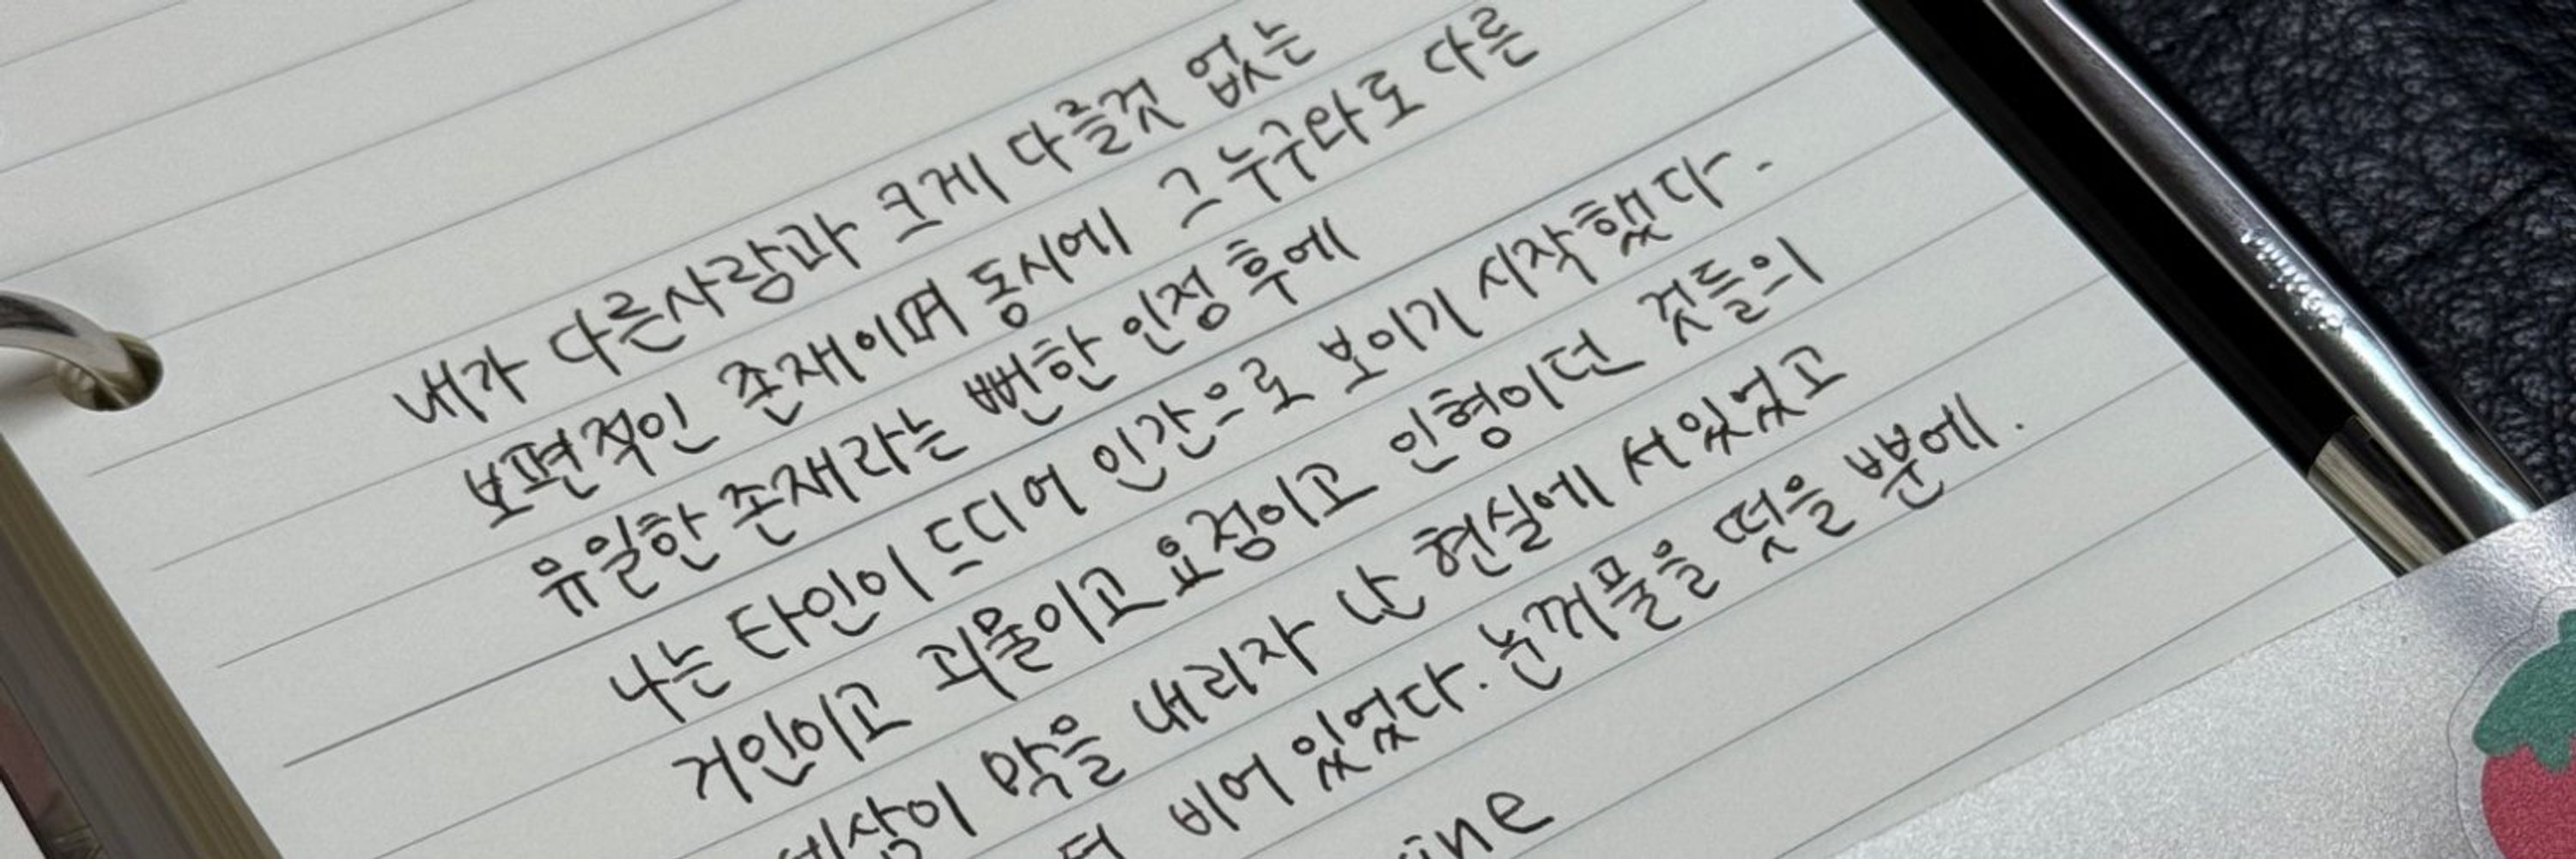 내가 다른사람과 크게 다를것 없는
보편적인 존재이며 동시에 그 누구와도 다른
유일한 존재라는 뻔한 인정 후에
나는 타인이 드디어 인간으로 보이기 시작했다.
거인이고 괴물이고 요정이고 인형이던 것들의
세상이 막을 내리자 난 현실에 서있었고
비어 있었다. 눈꺼풀을 떳을 뿐에.